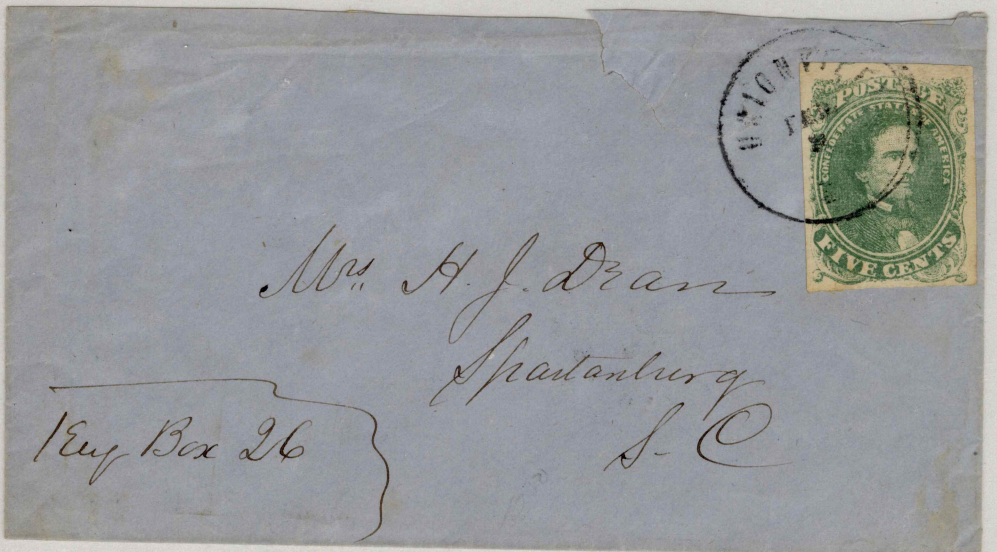 UNIONVILLE
POSTAGE
CONFEDERATE STATES OF AMERICA
FIVE CENTS
Mrs. H. J. Dean
Spartanburg
S. C
Box 26